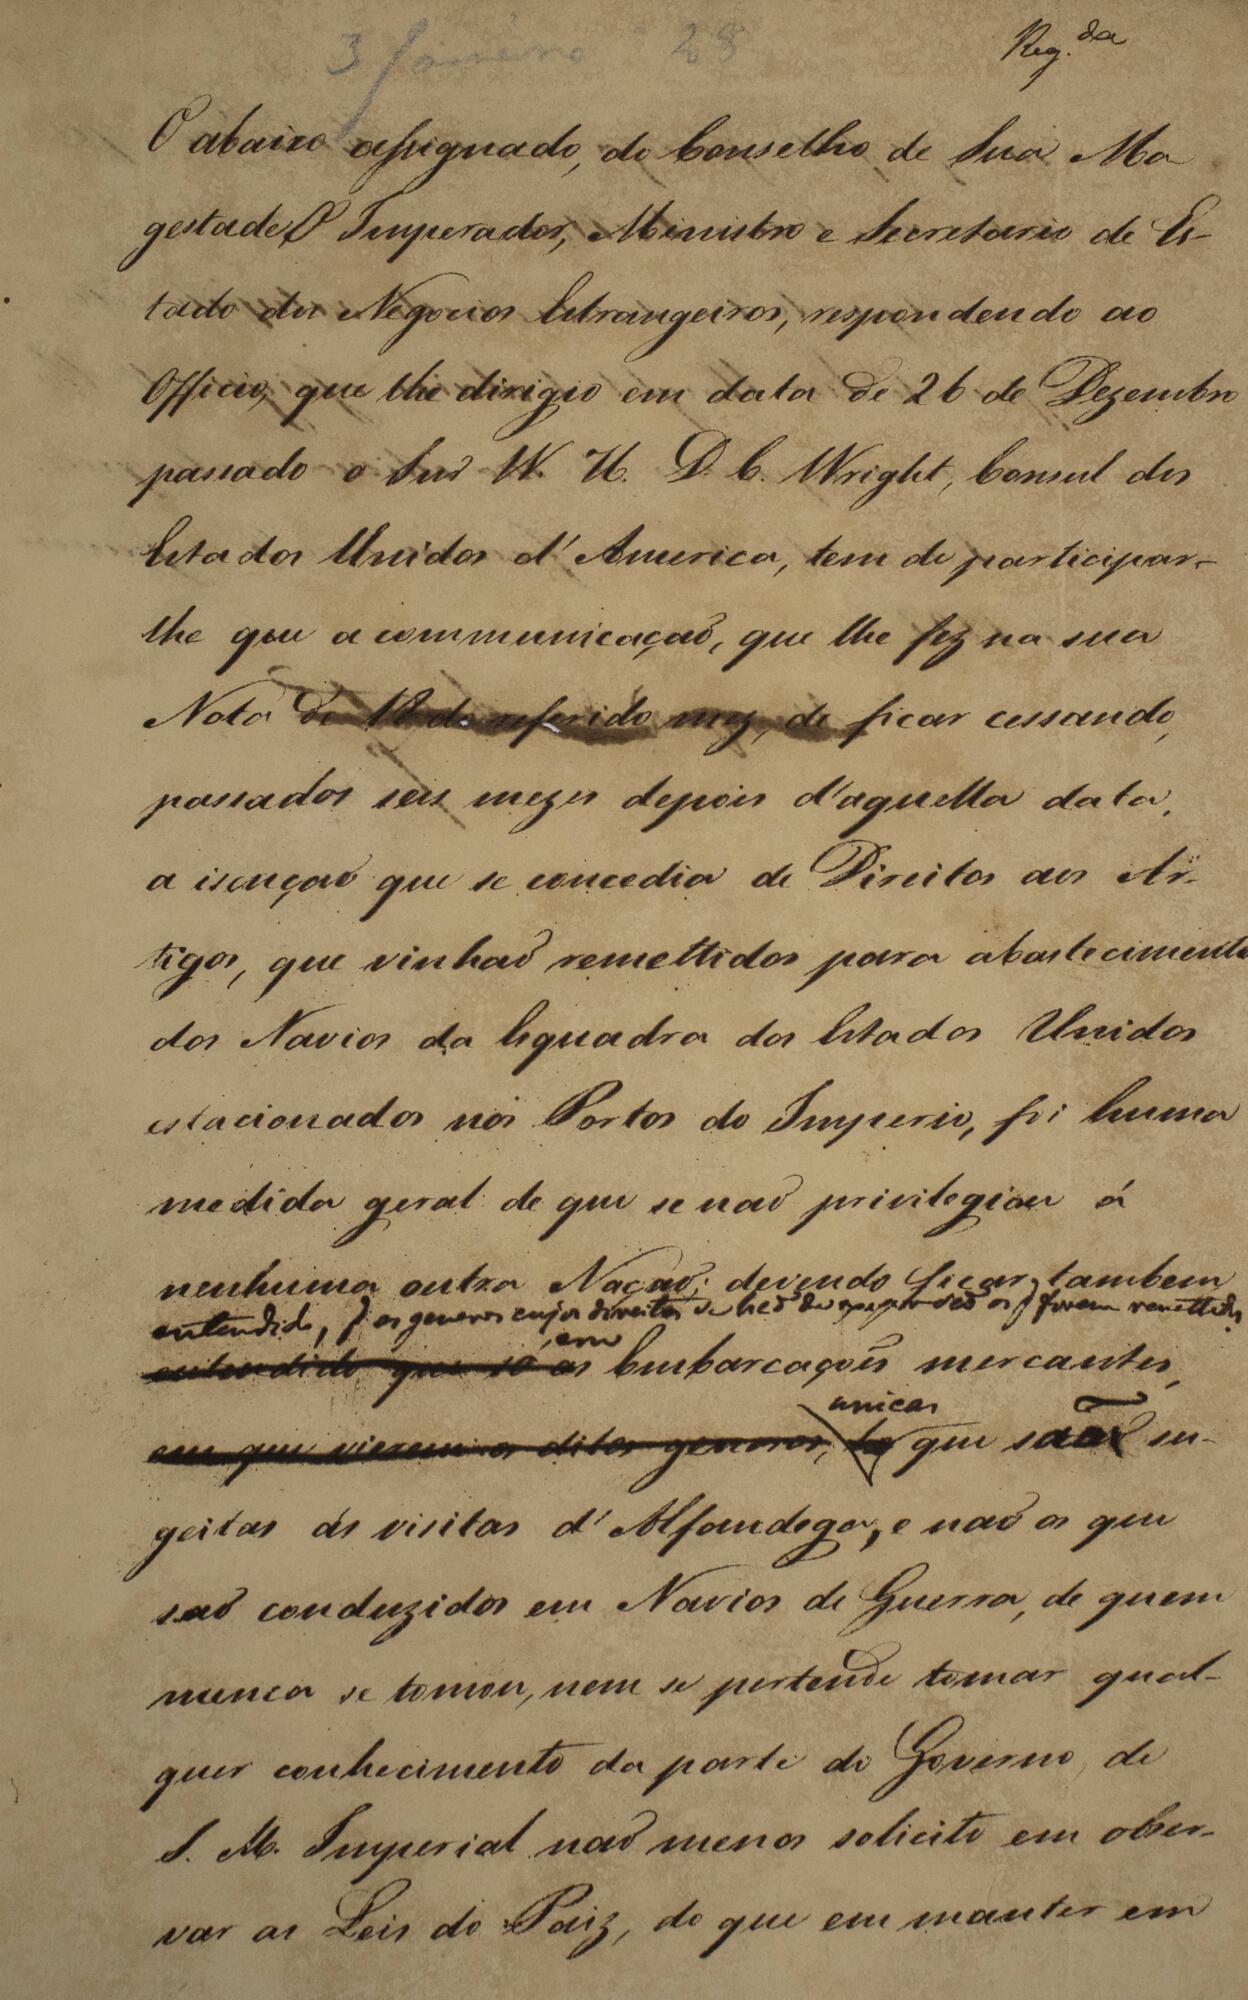 3 Janeiro 28
Reg.da
O abaixo assignado, do Conselho de Sua Ma
gestade O Imperador, Ministro e Secretario de Es-
tado dos Negocios Estrangeiros, respondendo ao
Officio, que lhe dirigio em data de 26 de Dezembro
passado o Snr W. H. D. C. Wright, Consul dos
Estados Unidos d'America, tem de participar-
lhe que a communicação, que lhe fez na sua
Nota de 18 do referido mez, de ficar cessando,
passados seis mezes depois d'aquella data,
a isenção que se concedia de Direitos aos Ar-
tigos, que vinhaõ remettidos para abastecimento
dos Navios da Esquadra dos Estados Unidos
estacionados nos Portos do Imperio, foi huma
medida geral de que se naõ privilegiou á
nenhuma outra Naçaõ; devendo ficar, tambem
entendido, q os generos cujos direitos se haõ de os q forem remettidos
entendido que só as em Embarcaçoẽs mercantes,
em que vierem os ditos generos, unicas que saõ su-
geitas ás visitas d'Alfandega, e naõ os que
saõ conduzidos em Navios de Guerra, de quem
nunca se tomou, nem se pertende tomar qual-
quer conhecimento da parte do Governo de
S. M. Imperial naõ menos solicito em obser-
var as Leis do Paiz, do que em manter em